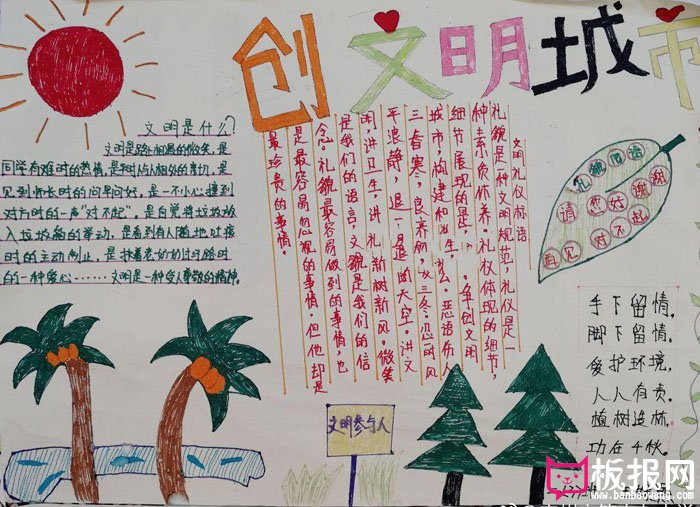 创文明城市
文明是什么?
文明是路上相遇的微笑，是
同学有难时的热情，是
见到师长时的问早问好，是一不小心撞到
对方时的一声“对不起”，是自觉将垃圾放
入垃圾箱的举动，是看到有人随地吐痰
时的主动制止，是扶着老奶奶过马路时
的一种爱心……文明是一种受人尊敬的精神。
文明礼仪标语
礼貌是一种文明规范，礼仪是一
种素质体养。礼仪体现的细节，
细节展现的是
争创文明
城市，构建和
恶语伤人
三春寒，良
三冬。忍
风
平浪静，退一
的天空。讲文
明，讲卫生，讲礼
新树新风。微笑
是我们的语言，文貌是我们的信
念。礼貌最容易做到的事情，也
是最容易忽视的事情，但他却是
最珍贵的事情。
礼貌用语
请 您好 谢谢
再见 对不起
手下留情，
脚下留情。
爱护环境，
人人有责。
植树造林，
功在千秋。
文明参与人
板报网
www.banbaowang.com